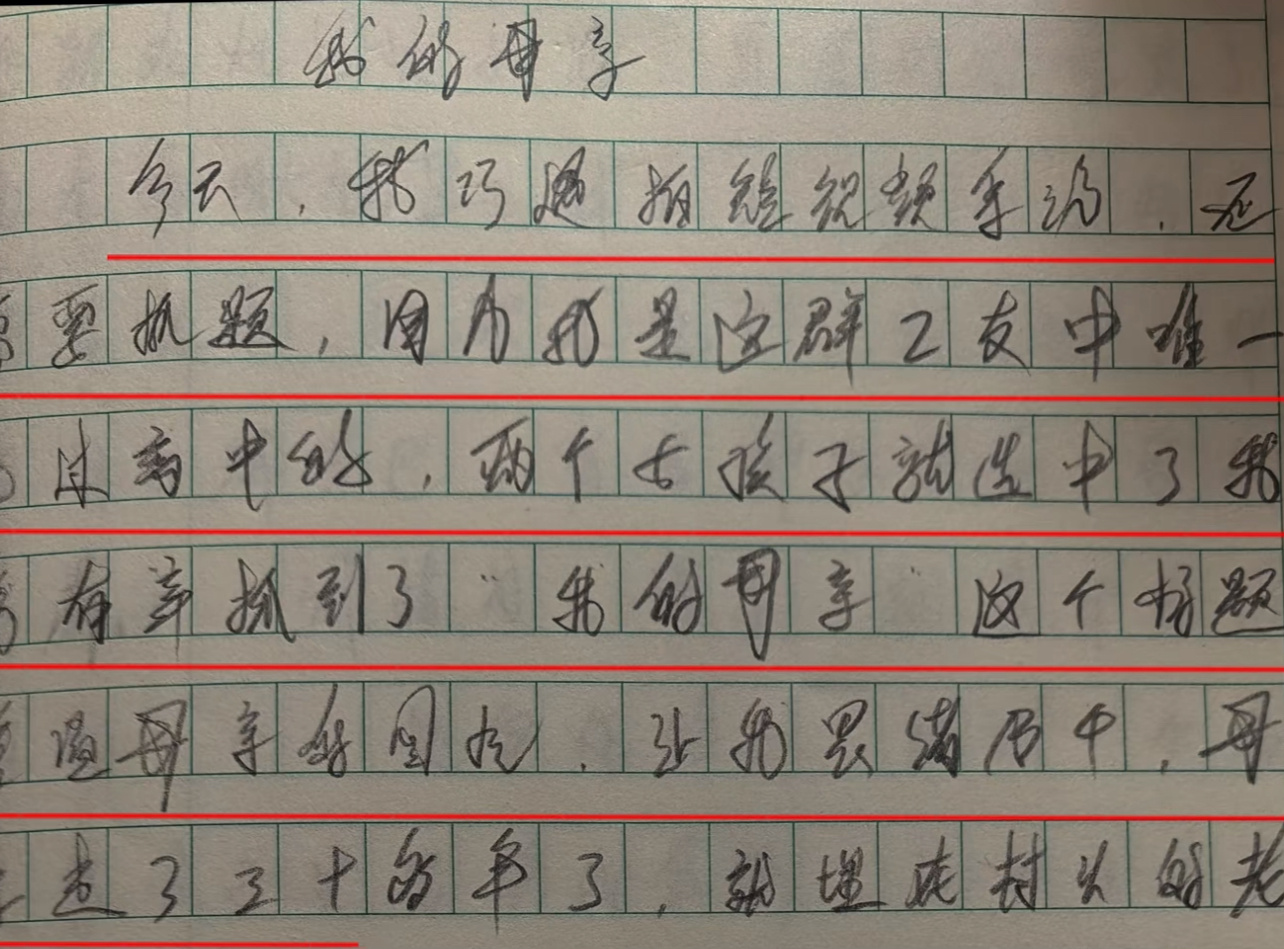 我的母亲
今天，我巧遇拍短视频手机，还
要抓题，因为我是这群工友中唯一
过高中的，两个女孩子就选中了我
有幸抓到了“我的母亲”这个标题
母亲的图像，让我思绪万千，母
走了三十多年了，就埋在村头的老